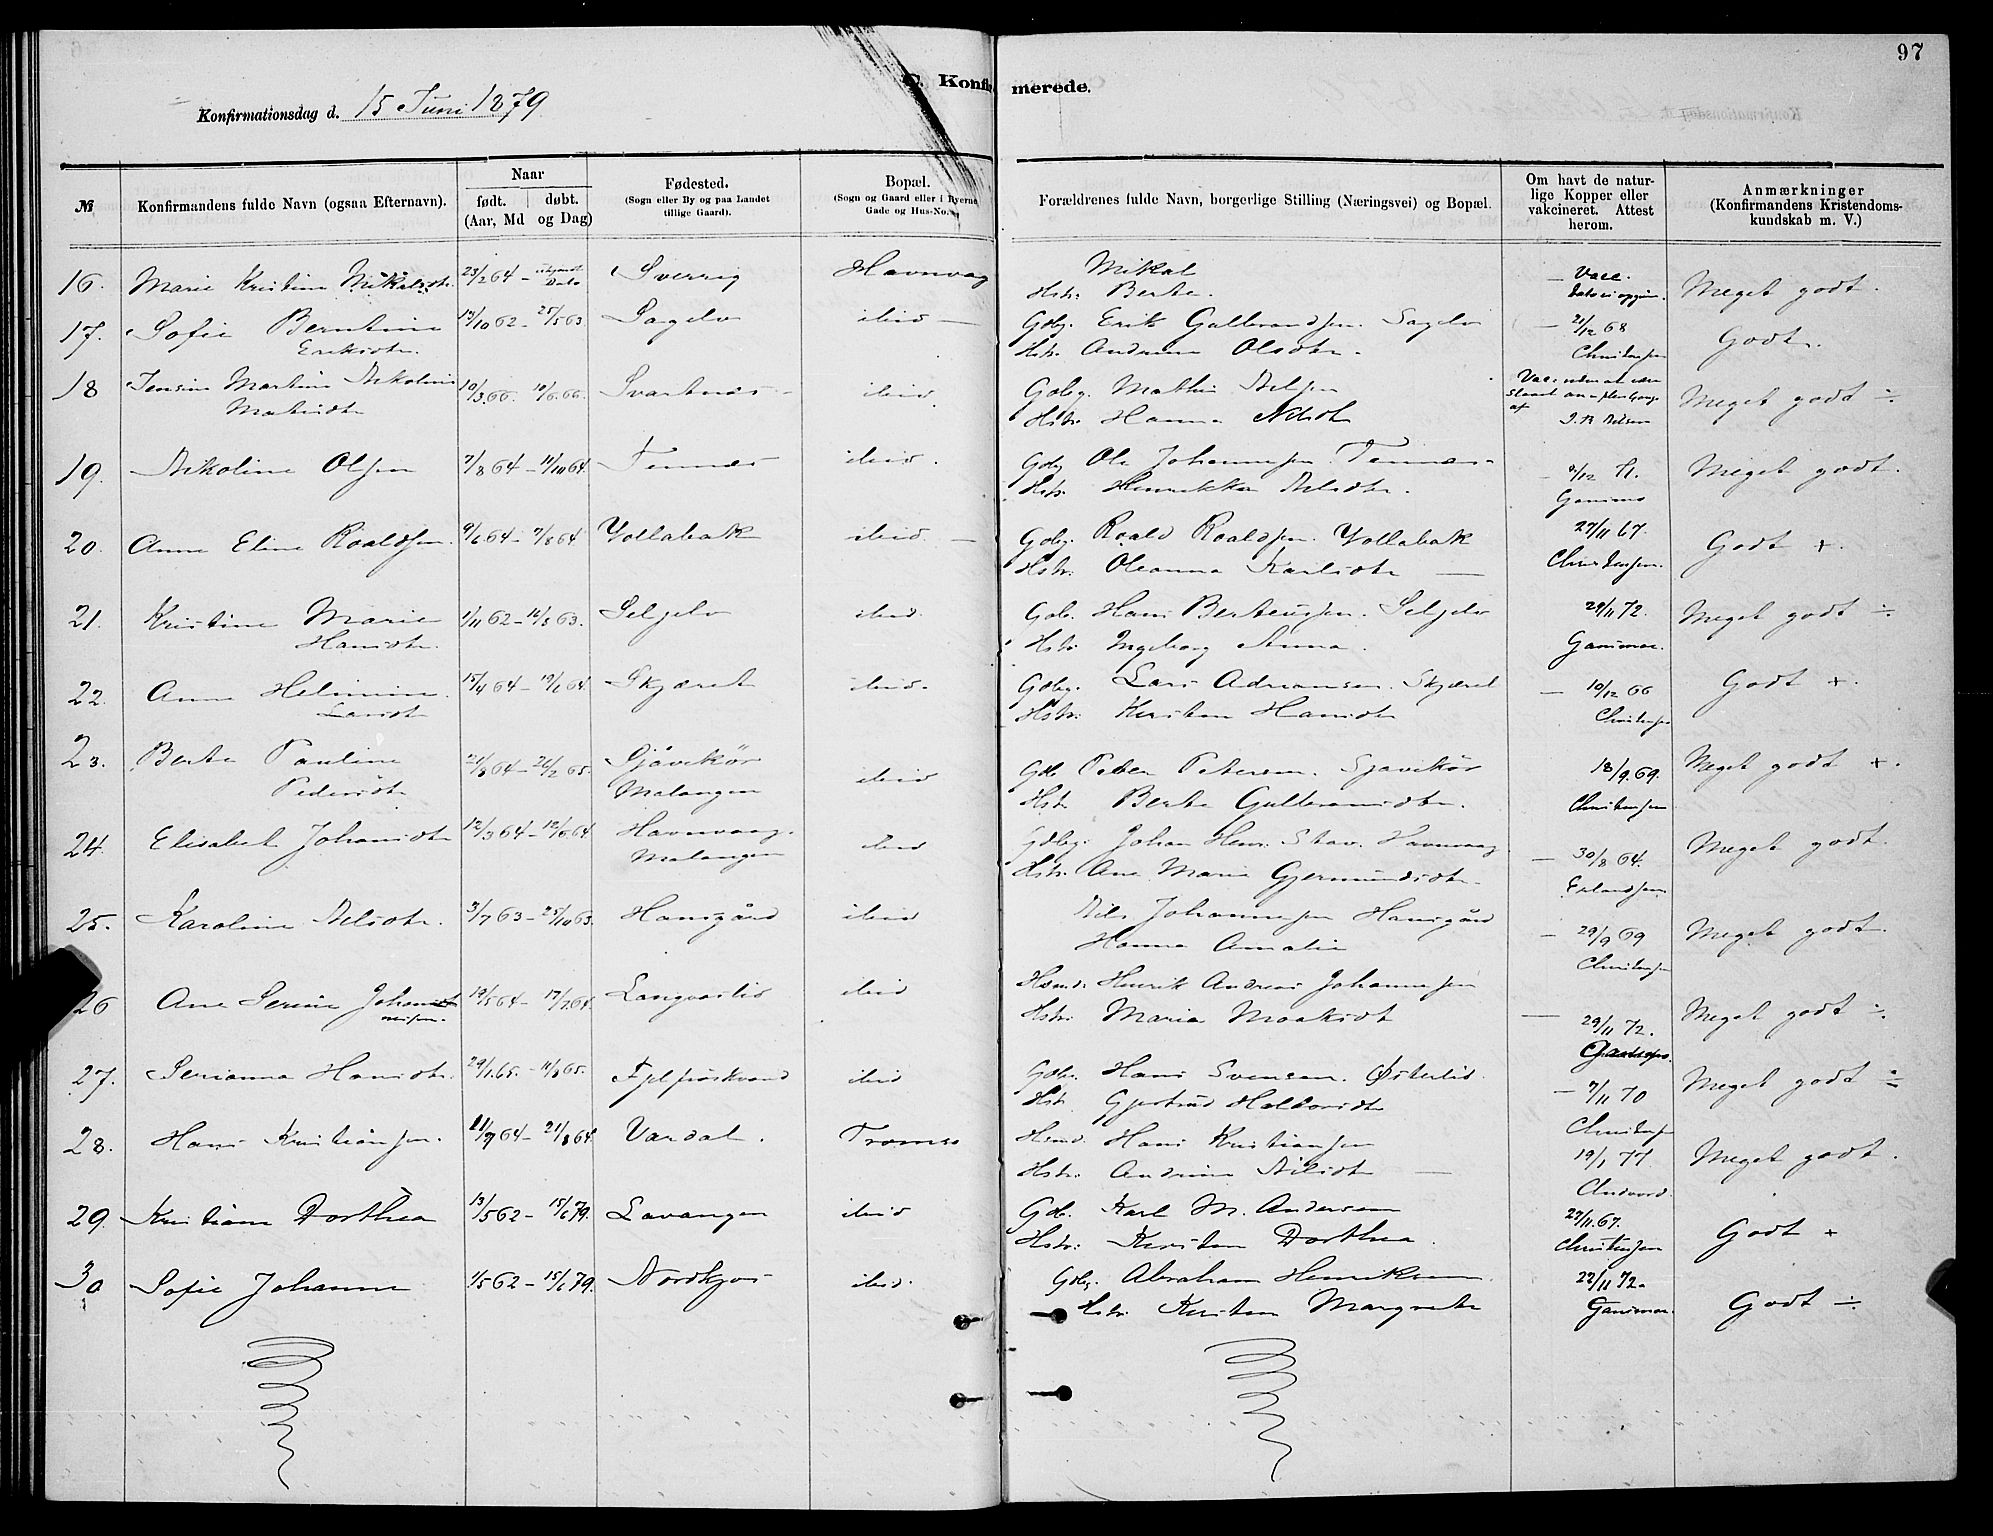 97
C. Konfirmerede.
Konfirmationsdag d. 15 Juni 1879
№ Konfirmandens fulde Navn (ogsaa Efternavn). Naar født. (Aar, Md døbt. og Dag) Fødested. (Sogn eller By og paa Landet tillige Gaard). Bopæl. (Sogn og Gaard eller i Byerne Gade og Hus-No.) Forældrenes fulde Navn, borgerlige Stilling (Næringsvei) og Bopæl. Om havt de naturlige Kopper eller vakcineret. Attest herom. Anmærkninger (Konfirmandens Kristendomskundskab m. V.)
16. Marie Kristine Mikalsdtr. 23/2 64 – Sverrig Havnvaag Mikal – Vacc. Meget godt.
Hstr. Berte.
17. Sofie Berntine 13/10 62 – 25/5 63. Sagelv ibid – Gbg. Erik Gulbrandsen. Sagelv – 21/12 68 Godt.
Eriksdtr. Hstr. Andrine Olsdtr. Christensen
18 Jensine Martine Nikoline 19/3 66. 10/6 66. Svartnes – ibid. Gbg. Mathis Nilsen Meget godt ÷
Hstr. Hanna Nilsdtr
19. Nikoline Olsen 7/8 64 – 11/10 64. Tennes ibid. Gbg Ole Johannesen. Tennes – Meget godt.
Hstr. Henrikka Nilsdtr.
20. Anne Eline Roaldsen. 9/6 64 – 7/8 64 Yollabak ibid. – Gbg. Roald Roaldsen. Yollabak 27/11 67. Godt +.
Hstr. Oleanna Karlsdtr – Christensen.
21. Kristine Marie 1/11 62 – 16/8 63. Selgelv ibid. Gb. Hans Berteussen. Selgelv 29/11 72. Meget godt ÷
Hansdtr. Hstr. Ingeborg Anna.
22. Anne Helmine 15/4 64 – 19/6 64. Skjæret ibid. Gbg. Lars Adriansen. Skjæret – 10/12 66 Godt +.
Larsdtr Hstr. Kirsten Hansdtr Christensen
23. Berte Pauline 21/8 64 – 26/2 65. Gjøvikør ibid Gb Peter Petersen. Gjøvikør 18/9. 69. Meget godt +.
Pedersdtr Malangen Hstr Berte Gulbransdtr. Christensen
24. Elisabet Johansdtr 12/3 64 – 12/6 64 Havnvaag. ibid Gbg. Johan Henr. Stav. Havnvaag – 30/8 64. Meget godt.
Malangen Hstr. Ane Marie Gjermundsdtr. Erlandsen.
25. Karoline Nilsdtr. 3/7 63 – 25/10 63. Hansgård ibid Nils Johannesen Hansgård – 29/9 69 Meget godt.
Hanna Amalie Christensen
26 Ane Serine 19/5 64 – 17/7 64. ibid Hsmd. Henrik Andreas Johannesen – 29/11 72. Meget godt ÷.
Hstr. Maria
27. Serianna Hansdtr. 29/1 65. – 11/8 65. ibid Gb. Hans Svensen. Østerlid. – 7/11 70 Meget godt ÷
Hstr. Gjertrud Haldorsdtr Christensen
28. Hans Kristiansen. 21/7 64 – 21/8 64. Vardal. Tromsø Hsmd. Hans Kristiansen 19/1 77. Meget godt.
Hstr. Andrine Nilsdtr –
29. Kristiane Dorthea 13/5 62 – 15/6 79. Lavangen ibid Gb. Karl M. Andersen 27/11. 67. Godt +
Hstr. Kirsten Dorthea. Christensen
30 Sofie Johanne 1/5 62 – 15/6 79. Nordkjos ibid. Gbg. Abraham Henriksen. 22/11 72. Godt ÷.
Hstr. Kirsten Margrete